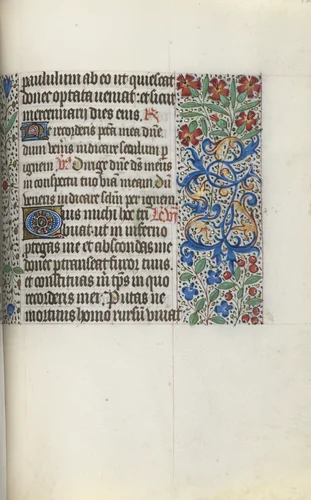 paululum ab eo ut quiescat
donec optata veniat: et sicut
mercennarij dies eius, R
Ne recorderis pcta mea dñe
dum veñis iudicare seculum p
ignem V. Dirige dñe ds meus
in conspectu tuo viã meam. Dũ
veneris iudicare sclm per ignem.
Quis michi hoc tri Lectio
buat: ut in inferno
protegas me et abscondas me
donec pertranseat furor tuus.
et constituas m tps in quo
recorderis mei, Putas ne
mortuus homo rursũ vivat